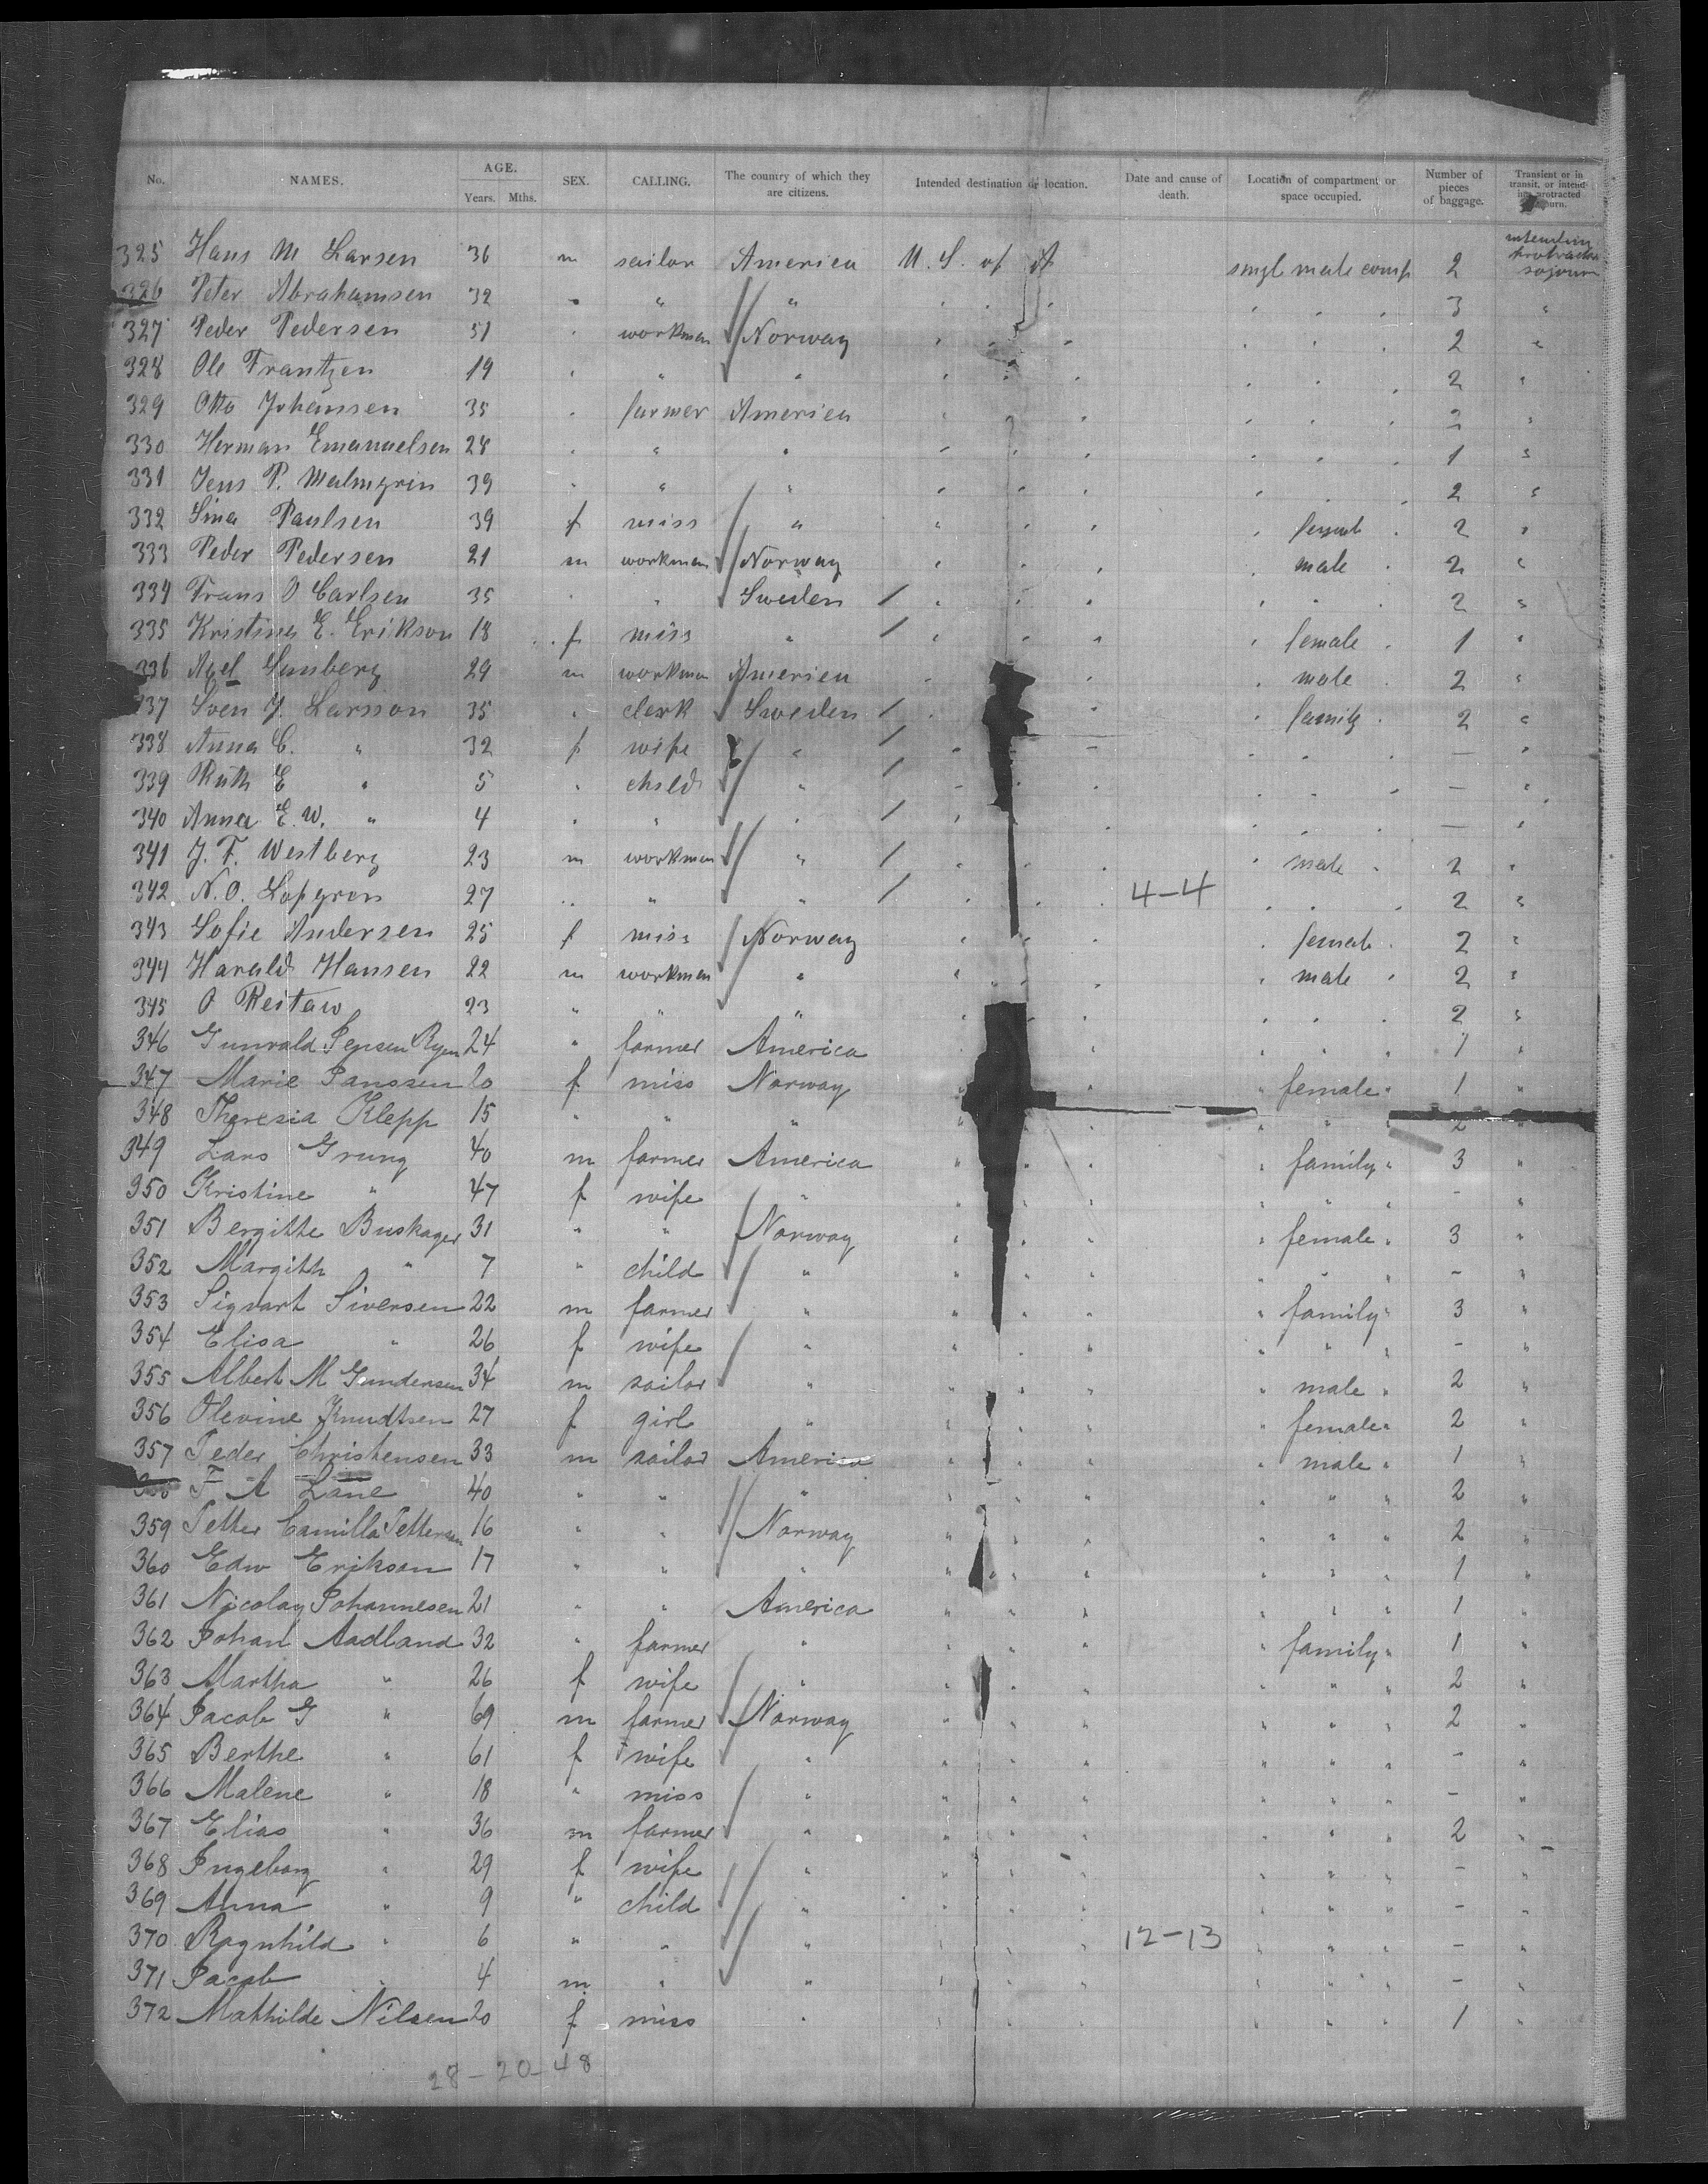 No. NAMES. AGE. Years. Mths. SEX. CALLING. The country of which they are citizens. Intended destination or location. Date and cause of death. Location of compartment or space occupied. Number of pieces of baggage. Transient or in transit, or intending protracted sojourn.
325 Hans M Larsen 36 m sailor America U. S. of A singl male comp 2 intending protracted sojourn
326 Peter Abrahamsen 32 " " " " " " " " " 3 "
327 Peder Pedersen 51 " workman Norway " " " " " " 2 "
328 Ole Frantzen 19 " " " " " " " " " 2 "
329 Otto Johansen 35 " farmer America " " " " " " 2 "
330 Herman Emanuelsen 28 " " " " " " " " " 1 "
331 Jens P. Malmgrin 39 " " " " " " " " " 2 "
332 Lina Paulsen 39 f miss " " " " " female " 2 "
333 Peder Pedersen 21 m workman Norway " " " " male " 2 "
334 Frans O Carlsen 35 " " Sweden / " " " " " " 2 "
335 Kristina E. Erikson 18 f miss " / " " " " female " 1 "
336 Axel Lundberg 29 m workman America " " " male " 2 "
337 Sven J. Larsson 35 " clerk Sweden / " " " family " 2 "
338 Anna C. " 32 f wife " / " " " " " — "
339 Ruth E " 5 " child " / " " " " " — "
340 Anna E. W. " 4 " " " / " " " " " — "
341 J. F. Westberg 23 m workman " / " " " male " 2 "
342 N. O. Lofgren 27 " " " / " " " 4-4 " " " 2 "
343 Sofie Andersen 25 f miss Norway " " " " female " 2 "
344 Harald Hansen 22 m workman " " " " " male " 2 "
345 O Reitaw 23 " " " " " " " " " 2 "
346 Gunvald Jensen Ryen 24 " farmer America " " " " " 1 "
347 Marie Janssen 20 f miss Norway " " " female " 1 "
348 Theresia Klepp 15 " " " " " " " " 2 "
349 Lars Grung 40 m farmer America " " " " family " 3 "
350 Kristine " 47 f wife " " " " " " " - "
351 Bergitte Buskager 31 " " Norway " " " " female " 3 "
352 Margith " 7 " child " " " " " " " - "
353 Sigvart Siversen 22 m farmer " " " " " family " 3 "
354 Elisa " 26 f wife " " " " " " " - "
355 Albert M Gundersen 34 m sailor " " " " " male " 2 "
356 Olevine Knudtsen 27 f girl " " " " " female " 2 "
357 Peder Christensen 33 m sailor America " " " " male " 1 "
F A Lane 40 " " " " " " " " " 2 "
359 Petter Camilla Pettersen 16 " " Norway " " " " " " 2 "
360 Edw Erikson 17 " " " " " " " " " 1 "
361 Nicolay Johannesen 21 " " America " " " " " " 1 "
362 Johan Aadland 32 " farmer " " " " " family " 1 "
363 Martha " 26 f wife " " " " " " " 2 "
364 Jacob G " 69 m farmer Norway " " " " " " 2 "
365 Berthe " 61 f wife " " " " " " " - "
366 Malene " 18 " miss " " " " " " " - "
367 Elias " 36 m farmer " " " " " " " 2 "
368 Ingeborg " 29 f wife " " " " " " " - "
369 Anna " 9 " child " " " " " " " - "
370 Ragnhild " 6 " " " " " " 12-13 " " " - "
371 Jacob " 4 m " " " " " " " " - "
372 Mathilde Nilsen 20 f miss " " " " " " " 1 "
28-20-48